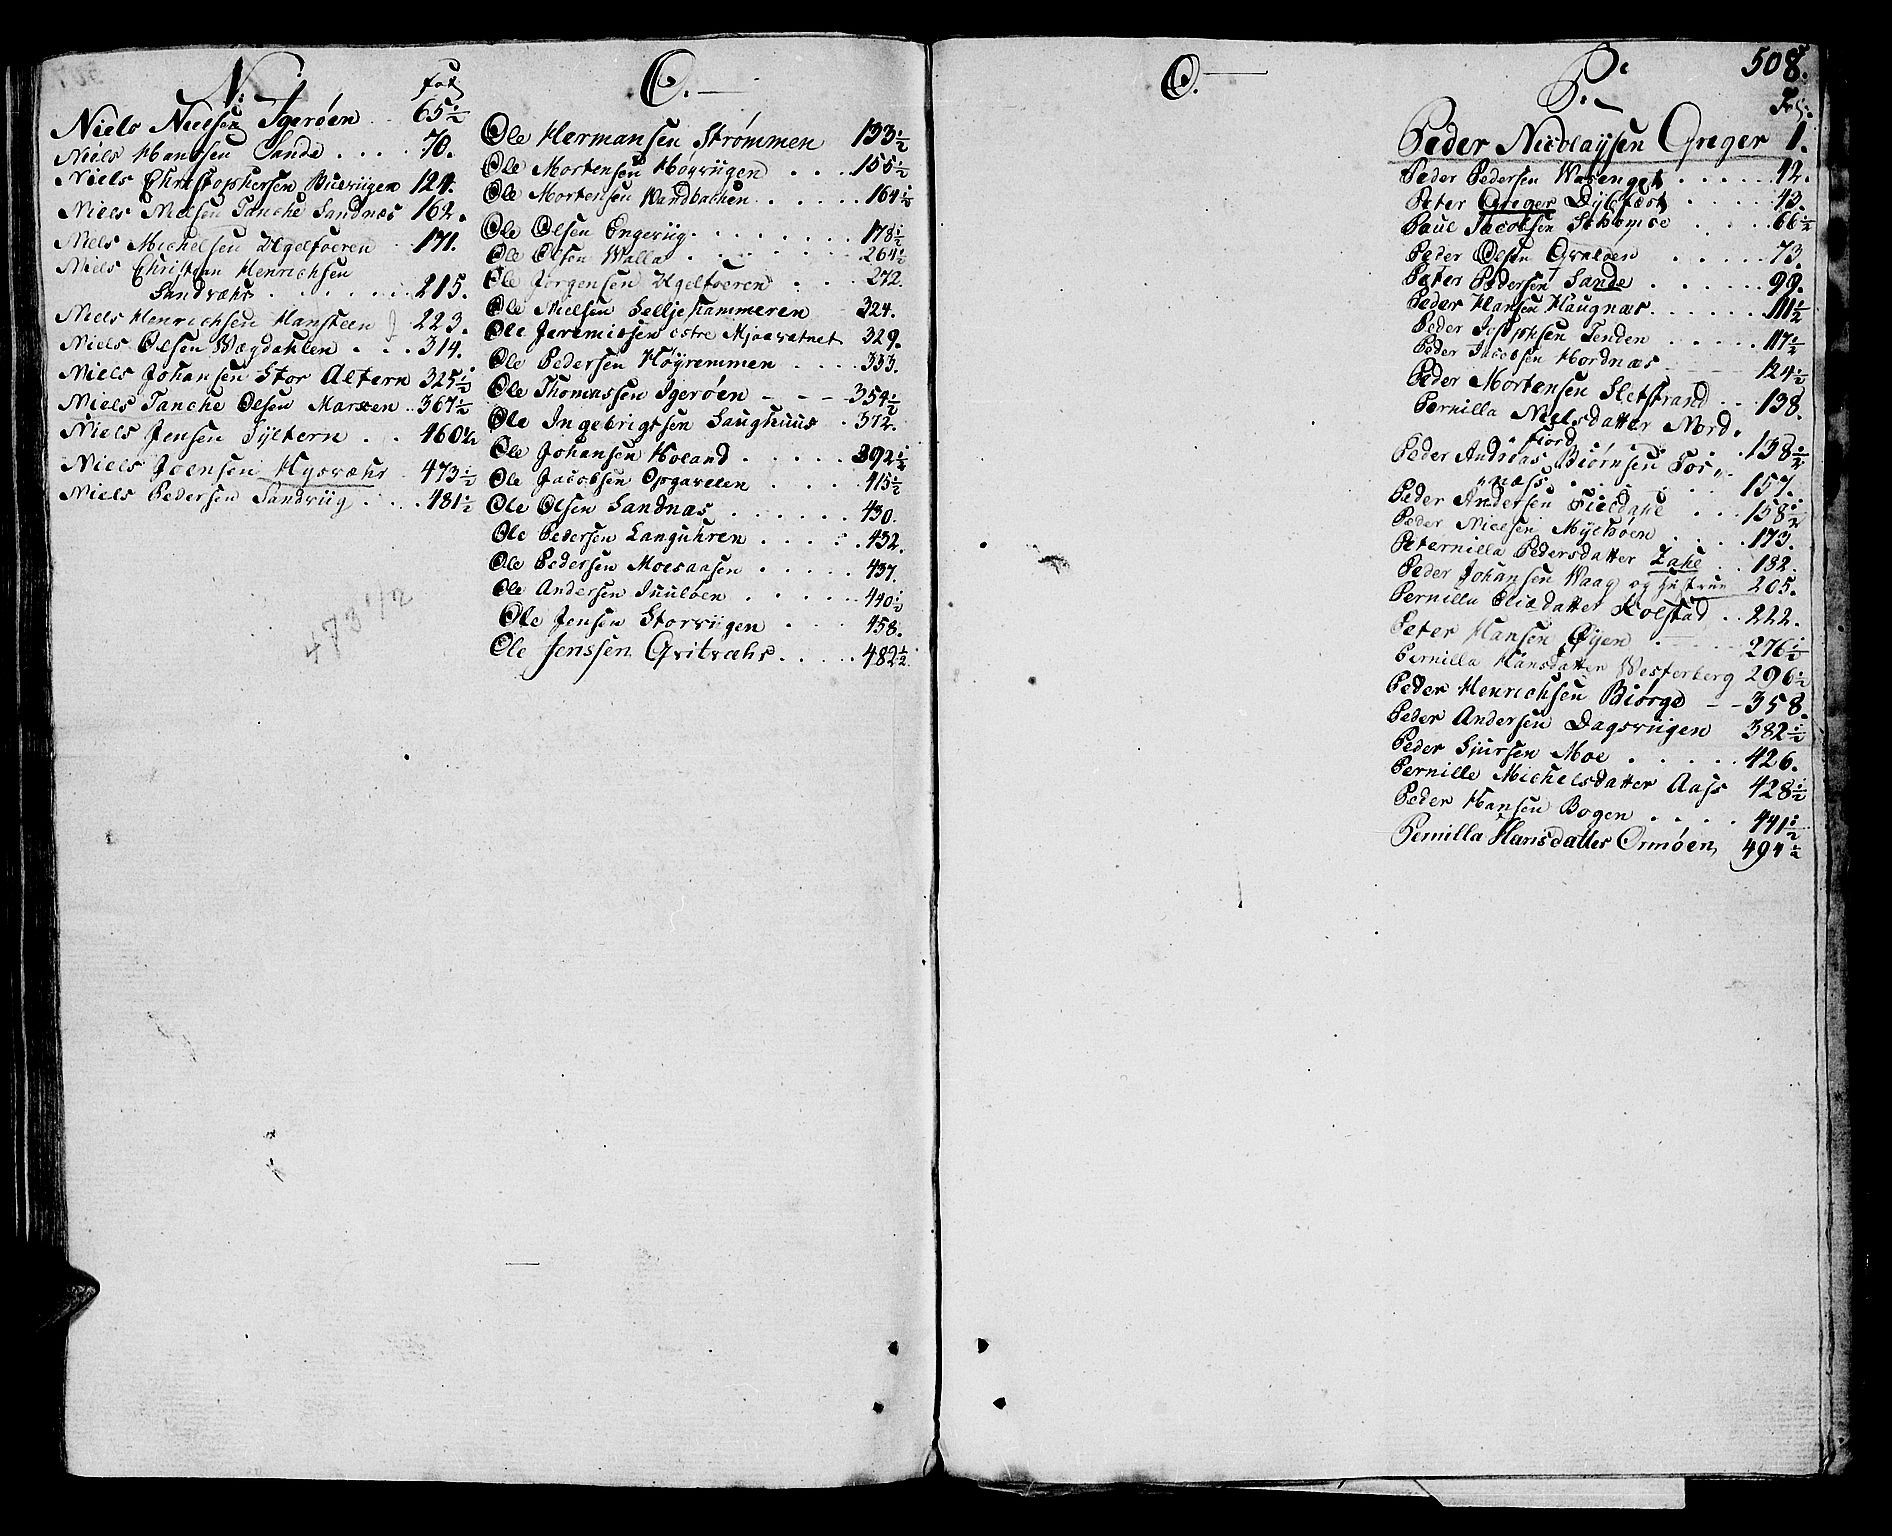 N:
fol
Niels Nielsen Igerøen 65 1/2
Niels Hansen Sande 70.
Niels Christophersen Bueviigen 124.
Niels Nielsen Tanche Sandnæs 162.
Niels Michelsen Ugelfveren 171.
Niels Christian Henrichsen
Sandværs 215.
Niels Henrichsen Hansteen 223.
Niels Olsen Wægdahlen 314.
Niels Johansen Stor Altern 325 1/2
Niels Tanche Olsen Marken 367 1/2
Niels Jensen Syltern 460 1/2
Niels Joensen Hysværhr 473 1/2
Niels Pedersen Sandviig 481 1/2
473 1/2
O.
Ole Hermansen Strømmen 133 1/2
Ole Mortensen Høyviigen 155 1/2
Ole Mortensen Wandbachen 164 1/2
Ole Olsen Engeviig 178 1/2
Ole Olsen Walla 264 1/2
Ole Jørgensen Ugelfveren 272.
Ole Nielsen Selljeskammeren 324.
Ole Jeremiesen østre Mjaavatnet 329.
Ole Pedersen Høyremmen 333.
Ole Thomassen Igerøen 354 1/2
Ole Ingebrigtsen Laughuus 372.
Ole Johansen Holand 392 1/2
Ole Jacobsen Opgavelen 415 1/2
Ole Olsen Sandnæs 430.
Ole Pedersen Languhren 432.
Ole Pedersen Moesaasen 437.
Ole Andersen Juuløen 440 1/2
Ole Jensen Storviigen 458.
Ole Jenssen Qvitværhr 482 1/2
O.
508.
P.
Fol:
Peder Nicolaysen Greger 1.
Peder Pedersen Warenget 42.
Peter Greger Dyblfæst 43.
Paul Jacobsen Stkomoe 66 1/2
Peder Olsen Qvaløen 73.
Peter Pedersen Sande 99.
Peder Hansen Haugnæs 111 1/2
Peder Josephsen Tenden 117 1/2
Peder Jacobsen Hordnæs 124 1/2
Peder Mortensen Sletstrand 138.
Pernilla Nielsdatter Nord.
fiord 138 1/2
Peder Andreas Biørnsen For„
„næss 157.
Peder Andersen Fieldahl 158 1/2
Peder Nielsen Myeboen 173.
Peternilla Pedersdatter Zahl 182.
Peder Johansen Waag og hustrue 205.
Pernilla Eliædatter Kolstad 222.
Peter Hansen Øyen 276 1/2
Pernilla Hansdatter Westerberg 296 1/2
Peder Henrichsen Biørge 358.
Peder Andersen Dagsviigen 382 1/2
Peder Siursen Moe 426.
Pernille Michelsdatter Aass 428 1/2
Peder Hansen Bogen 441 1/2
Pernilla Hansdatter Ormøen 494 1/2